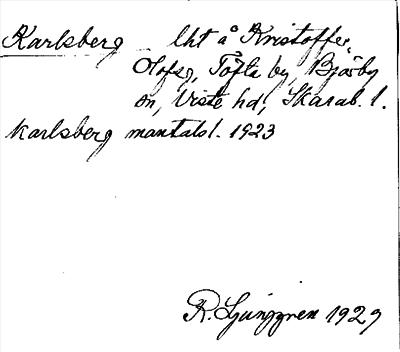 Karlsberg lht å Kristoffer
Olofsg, Tofta by, Bjärby
sn, Viste hd, Skarab. l.
Karlsberg mantalsl. 1923
R. Ljunggren 1929